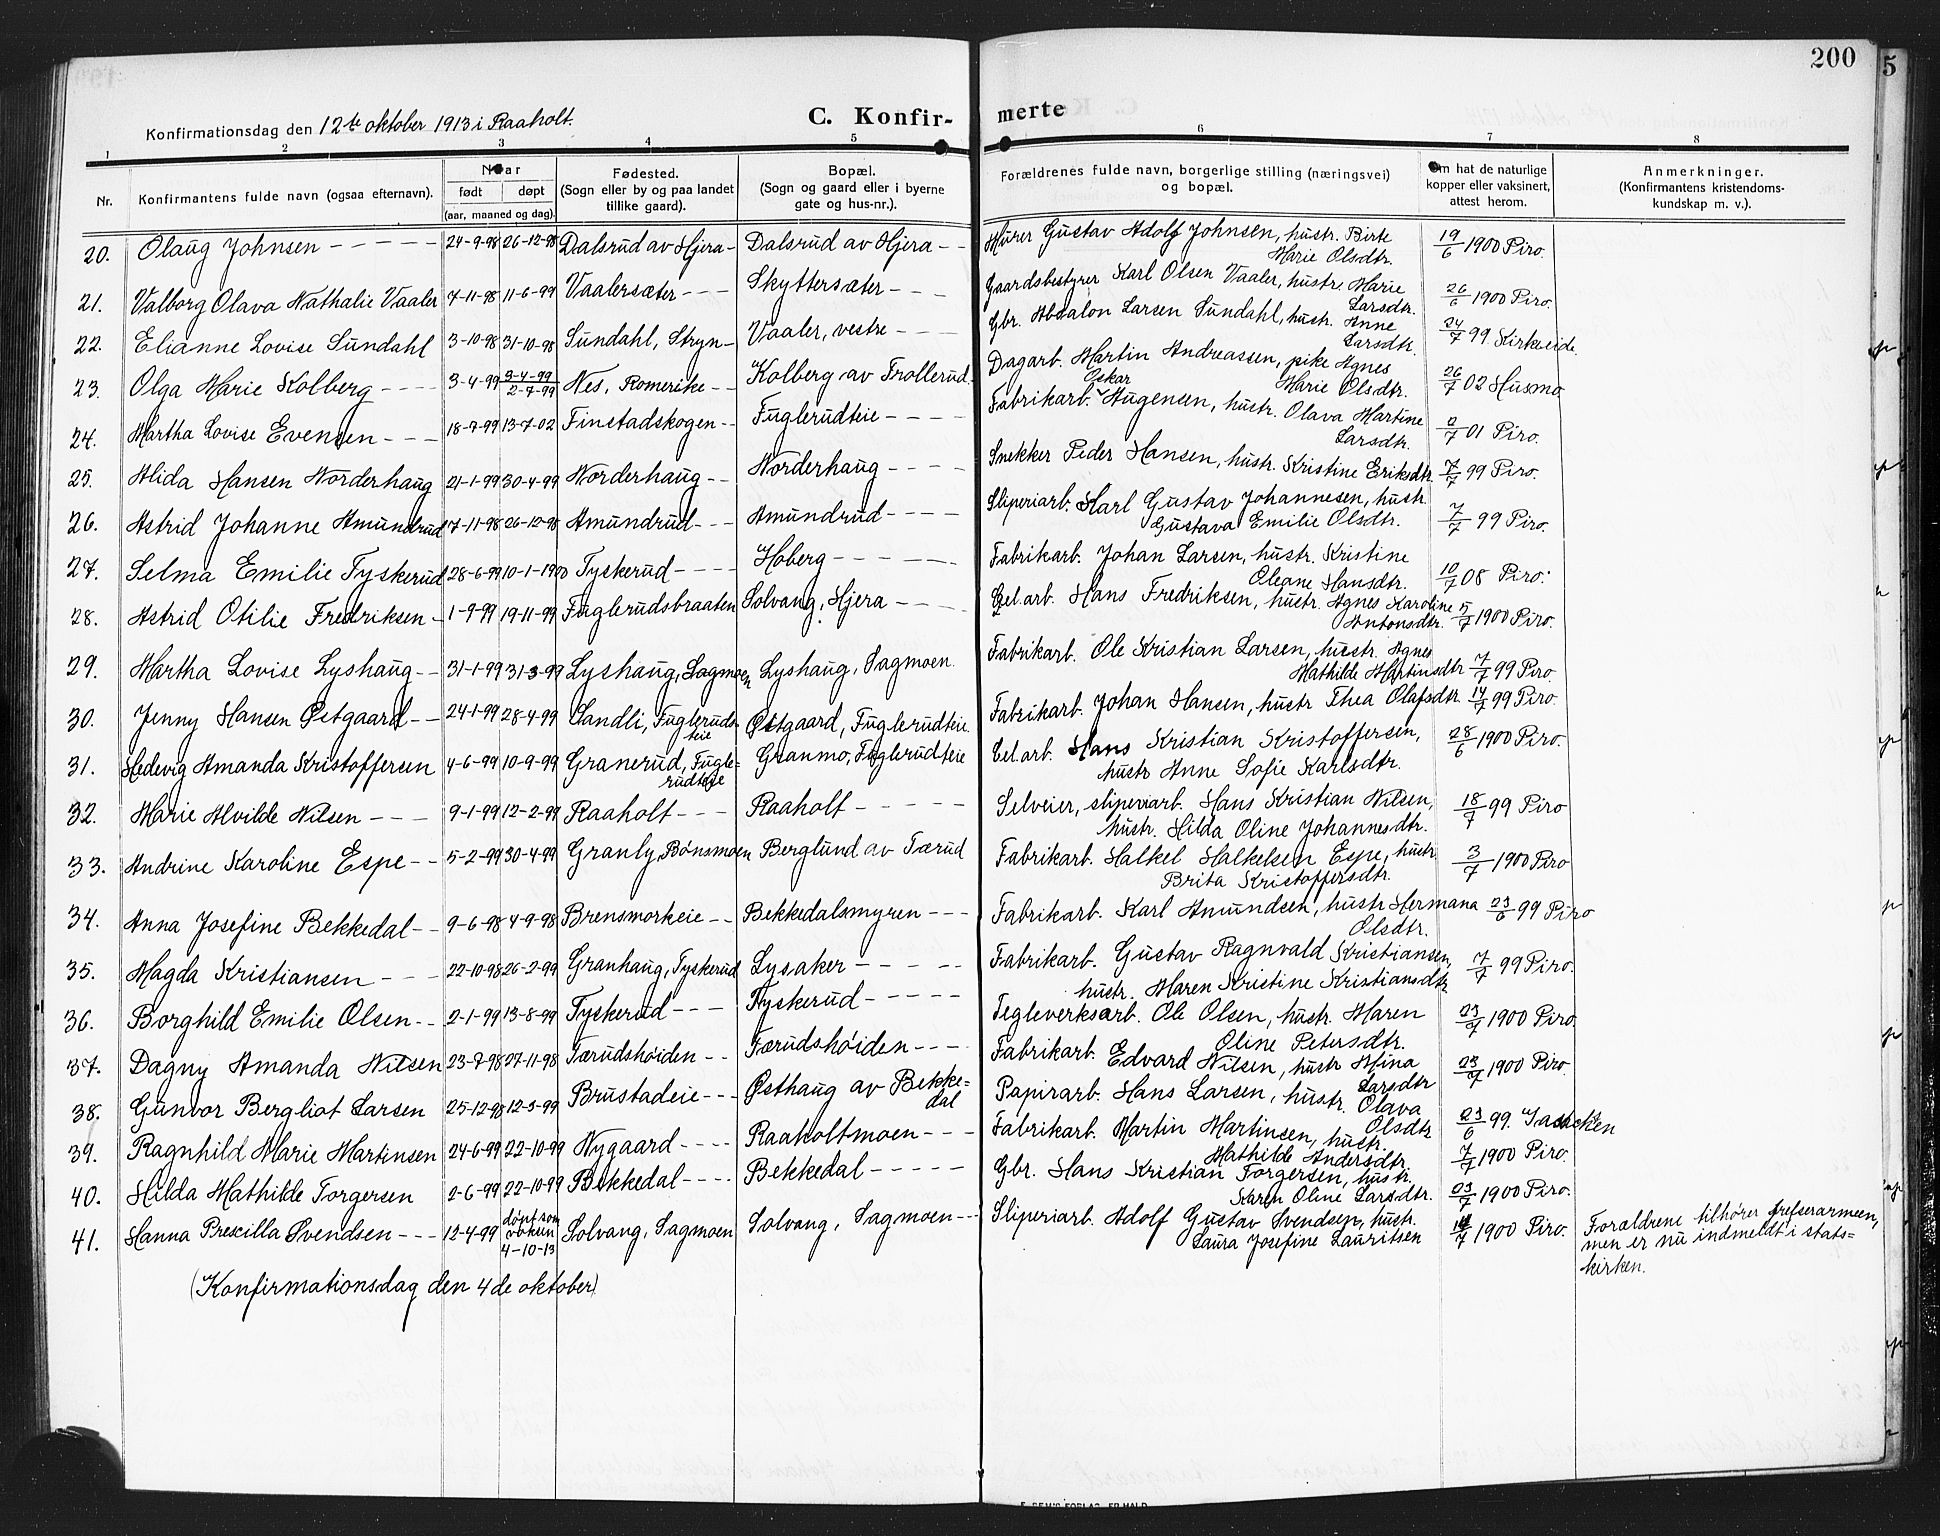 200
5
Konfirmationsdag den 12te oktober 1913 i Raaholt.
C. Konfirmerte
1 2 3 4 5 6 7 8
Nr.
Konfirmantens fulde navn (ogsaa efternavn).
Naar
født døpt
(aar, maaned og dag).
Fødested.
(Sogn eller by og paa landet
tillike gaard).
Bopæl.
(Sogn og gaard eller i byerne
gate og hus-nr.).
Forældrenes fulde navn, borgerlige stilling (næringsvei)
og bopæl.
Om hat de naturlige
kopper eller vaksinert,
attest herom.
Anmerkninger.
(Konfirmantens kristendoms-
kundskap m. v.).
20. Olaug Johnsen - - - - - 24-9-98 26-12-98 Dalsrud av Hjera - Dalsrud av Hjera - - Murer Gustav Adolf Johnsen, hustr. Birte 19/6 1900 Piro.
Marie Olsdtr.
21. Valborg Olava Nathalie Vaaler 7-11-98 11-6-99 Vaalersæter - - - Skyttersæter - - - Gaardsbestyrer Karl Olsen Vaaler, hustr. Marie 26/6 1900 Piro.
Larsdtr.
22. Elianne Lovise Sundahl 3-10-98 31-10-98 Sundahl, Stryn - Vaaler, vestre - - - Gbr. Absalon Larsen Sundahl, hustr. Anne 24/7 99. Kirkeeide.
Larsdtr.
23. Olga Marie Kolberg - - - - 3-4-99 3-4-99/2-7-99 Nes, Romerike - - Kolberg av Trollerud. Dagarb. Martin Andreassen, pike Agnes 26/7 02 Husmo.
Marie Olsdtr.
24. Martha Lovise Evensen - - - 18-9-99 13-7-02 Finstadskogen - - Fuglerudteie - - - - Fabrikarb. Oskar Haugensen, hustr. Olava Martine 2/7 01 Piro.
Larsdtr.
25. Alida Hansen Norderhaug 21-1-99 30-4-99 Norderhaug - - Norderhaug - - - - Snekker Peder Hansen, hustr. Kristine Eriksdtr. 7/7 99 Piro.
26. Astrid Johanne Amundrud 7-11-98 26-12-98 Amundrud - - - Amundrud - - - - Sliperiarb. Karl Gustav Johannesen, hustr. 7/7 99 Piro.
Gustava Emilie Olsdtr.
27. Selma Emilie Tyskerud 28-6-99 10-1-1900 Tyskerud - - - - Hoberg - - - - - Fabrikarb. Johan Larsen, hustr. Kristine 10/7 08 Piro.
Oleane Hansdtr.
28. Astrid Otilie Fredriksen - 1-9-99 19-11-99 Fuglerudsbraaten Solvang, Hjera - - - - Cel.arb. Hans Fredriksen, hustr. Agnes Karoline 5/7 1900 Piro.
Antonsdtr.
29. Martha Lovise Lyshaug - - 31-1-99 31-3-99 Lyshaug, Sagmoen Lyshaug, Sagmoen. Fabrikarb. Ole Kristian Larsen, hustr. Agnes
Mathilde Martinsdtr 7/7 99 Piro.
30. Jenny Hansen Østgaard - - 24-1-99 28-4-99 Sandli, Fuglerudsteie Østgaard, Fuglerudteie. Fabrikarb. Johan Hansen, hustr Thea Olafsdtr. 14/7 99 Piro.
31. Hedevig Amanda Kristoffersen 4-6-99 10-9-99 Granerud, Fugle= Granmo, Fuglerudteie Cel.arb. Hans Kristian Kristoffersen, 28/6 1900 Piro.
rudteie hustr Anne Sofie Karlsdtr.
32. Marie Alvilde Nilsen - - - 9-1-99 12-2-99 Raaholt - - - Raaholt - - - - - Selveier, sliperiarb. Hans Kristian Nilsen, 18/7 99 Piro
hustr. Hilda Oline Johannesdtr.
33. Andrine Karoline Espe - - 5-2-99 30-4-99 Granly, Bønsmoen Berglund av Tærud Fabrikarb. Halkel Halkelsen Espe, hustr 3/7 1900 Piro
Brita Kristoffersdtr.
34. Anna Josefine Bekkedal - - 9-6-98 4-9-98 Brensmorkeie - - Bekkedalsmyren - - - Fabrikarb. Karl Amundsen, hustr Hermana 23/6 99 Piro
Olsdtr.
35. Magda Kristiansen - - - 22-10-98 26-2-99 Granhaug, Tyskerud Lysaker - - - - - Fabrikarb. Gustav Ragnvald Kristiansen, 7/7 99 Piro.
hustr. Maren Kristine Kristiansdtr
36. Borghild Emilie Olsen - - 2-1-99 13-8-99 Tyskerud - - - Tyskerud - - - - - Tegleverksarb. Ole Olsen, hustr. Maren 23/7 1900 Piro.
Oline Petersdtr.
37. Dagny Amanda Nilsen 23-7-98 27-11-98 Tærudshøiden - - Tærudshøiden - - - Fabrikarb. Edvard Nilsen, hustr Mina 23/7 1900 Piro.
Larsdtr
38. Gunvor Bergliot Larsen 25-12-98 12-3-99 Brustadeie - - - Østhaug av Bekke= Papirarb. Hans Larsen, hustr. Olava 23/6 99.
dal Olsdtr
39. Ragnhild Marie Martinsen 24-6-99 22-10-99 Nygaard - - - - Raaholtmoen - - - Fabrikarb. Martin Martinsen, hustr. 7/7 1900 Piro.
Mathilde Andersdtr.
40. Hilda Mathilde Torgersen 2-6-99 22-10-99 Bekkedal - - - - Bekkedal - - - - - Gbr. Hans Kristian Torgersen, hustr. 23/7 1900 Piro.
Karen Oline Larsdtr.
41. Hanna Prescilla Svendsen - - - 12-4-99 døpt som voksen 4-10-13 Solvang, Sagmoen Solvang, Sagmoen - - Sliperiarb. Adolf Gustav Svendsen, hustr. 14/7 1900 Piro. Forældrene tilhører frelserarmeen,
Laura Josefine Lauritsen men er nu indmeldt i stats=
kirken.
(Konfirmationsdag den 4de oktober)